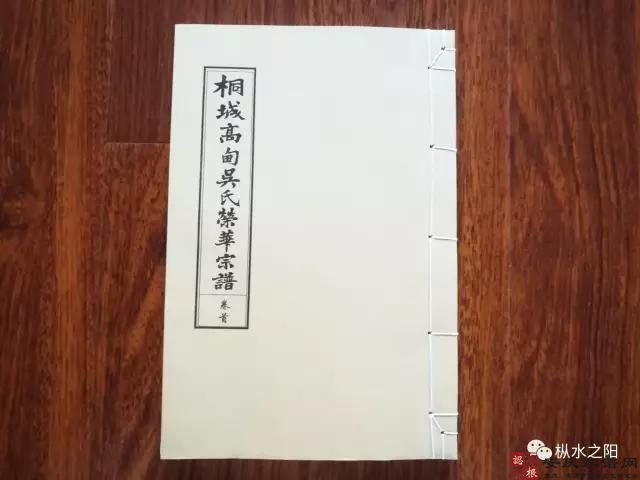 桐城高甸吴氏榮華宗譜
卷首
枞水之阳
認根